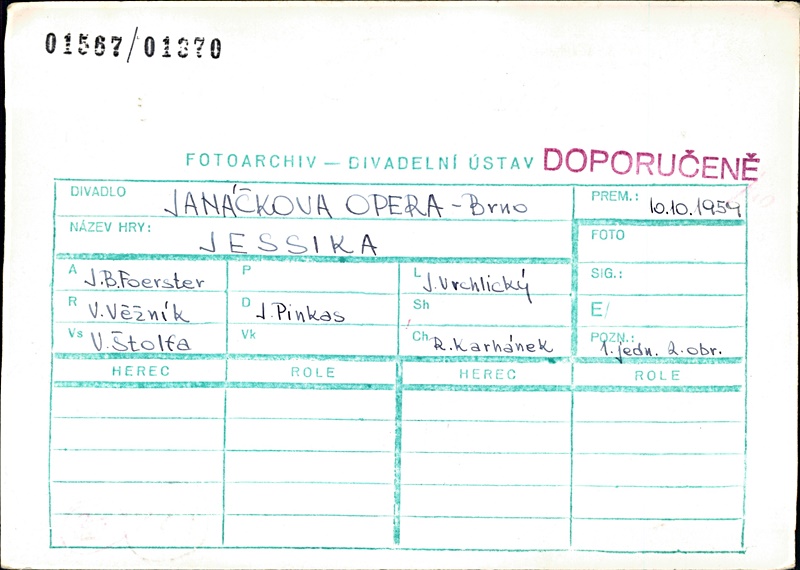 01567/01370
FOTOARCHIV — DIVADELNÍ ÚSTAV DOPORUČENĚ
DIVADLO JANÁČKOVA OPERA - Brno
PREM.: 10.10.1959
NÁZEV HRY: JESSIKA
FOTO
A J.B.Foerster
P
L J.Vrchlický
SIG.:
R V.Věžník
D J.Pinkas
Sh
E/
Vs V.Štolfa
Vk
Ch R.Karhánek
POZN.: 1.jedn. 2.obr.
HEREC ROLE HEREC ROLE